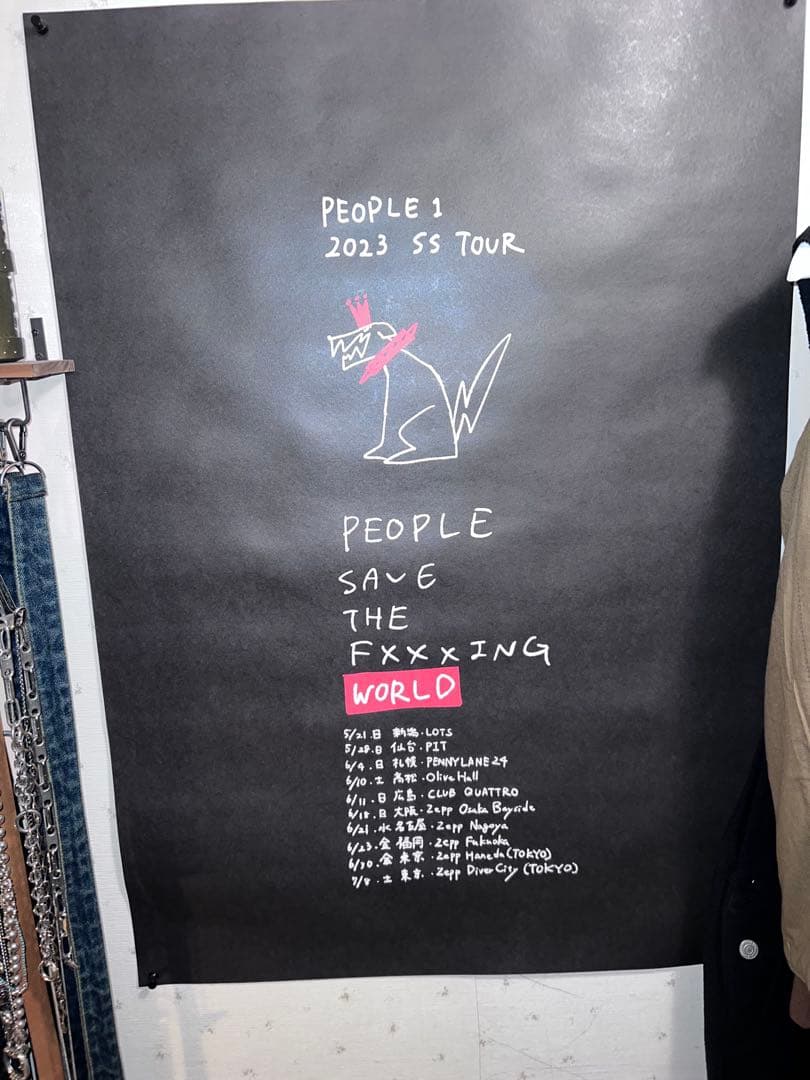 PEOPLE 1
2023 SS TOUR
PEOPLE
SAVE
THE
FXXXING
WORLD
5/21.日 新潟・LOTS
5/28.日 仙台・PIT
6/4.日 札幌・PENNY LANE 24
6/10.土 高松・Olive Hall
6/11.日 広島・CLUB QUATTRO
6/18.日 大阪・Zepp Osaka Bayside
6/21.水 名古屋・Zepp Nagoya
6/23.金 福岡・Zepp Fukuoka
6/30.金 東京・Zepp Haneda (TOKYO)
7/8.土 東京・Zepp DiverCity (TOKYO)